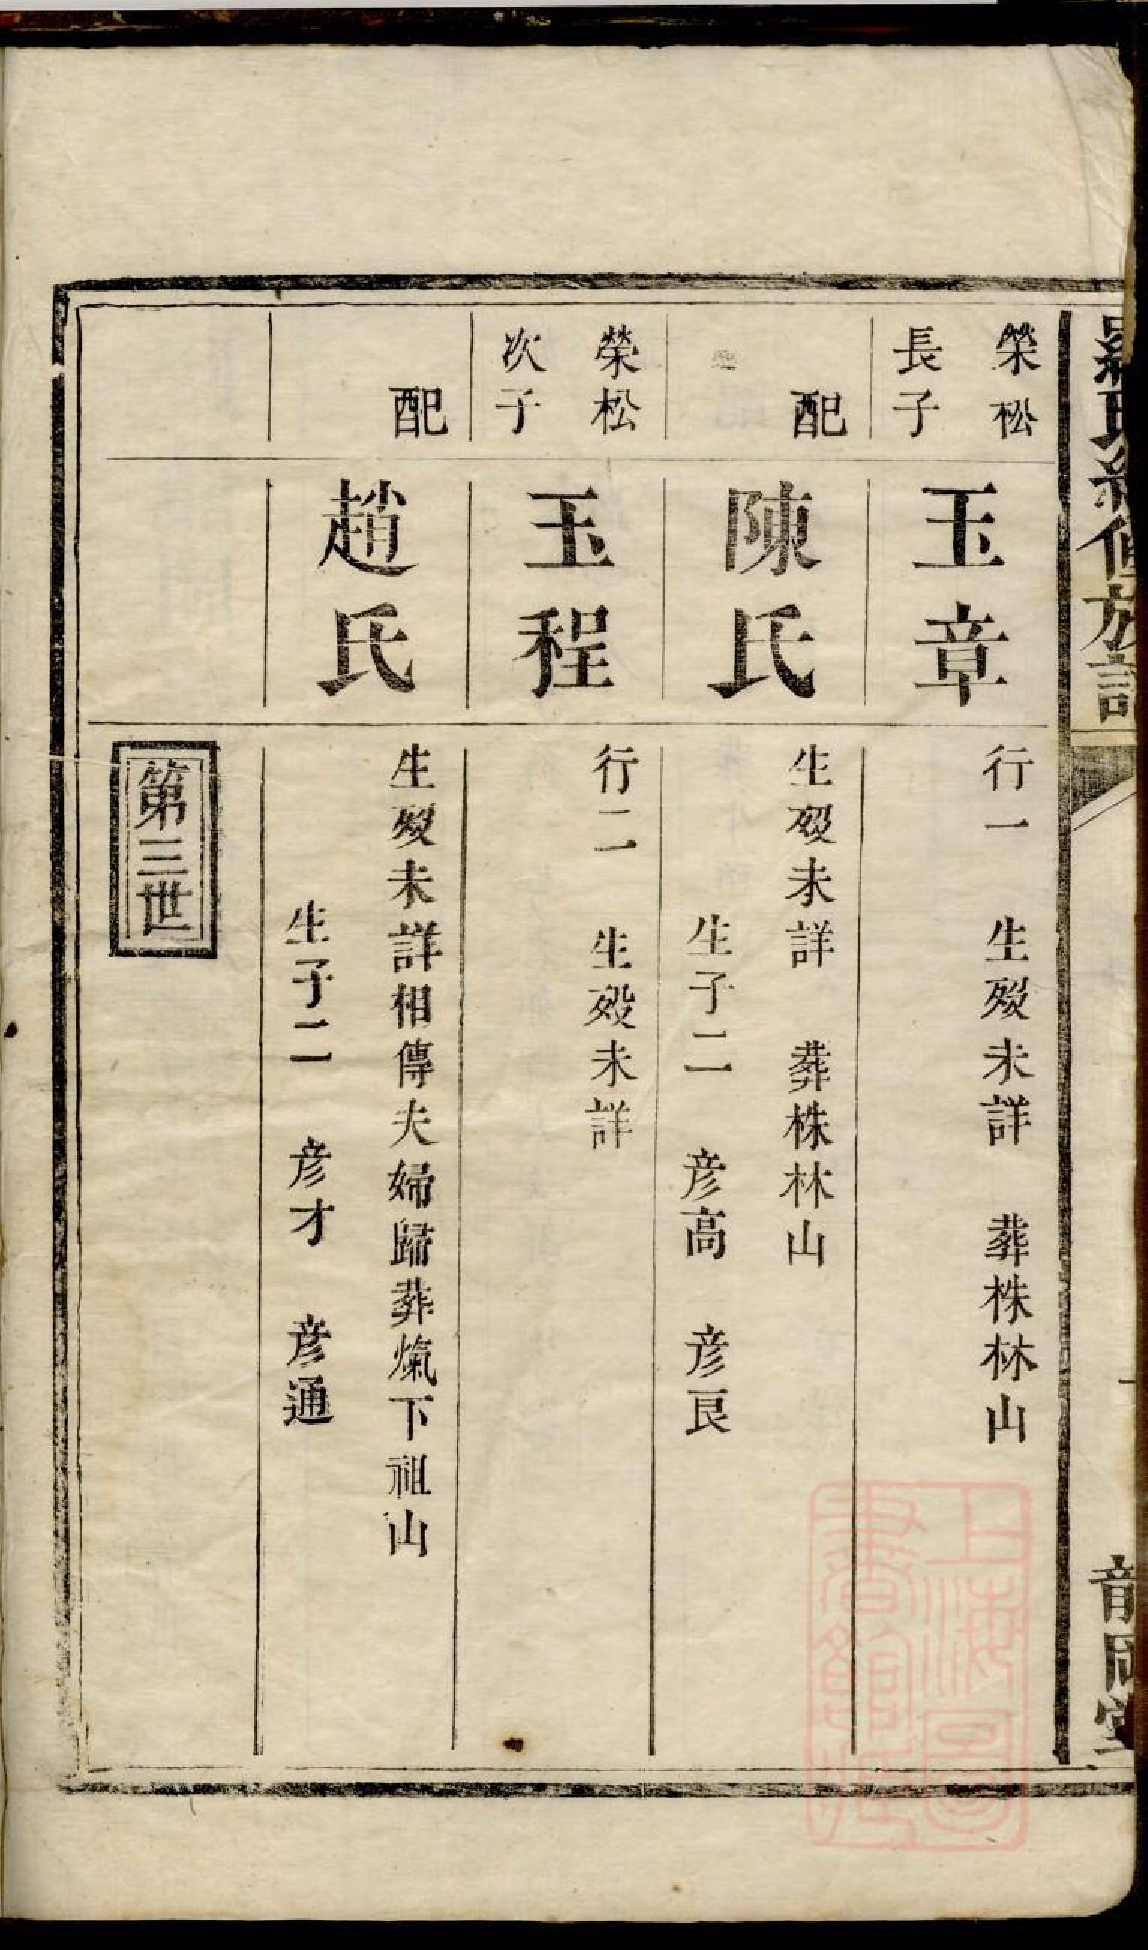 羅氏續修族譜
榮松
長子
玉章
行一 生歿未詳 葬株林山
配
陳氏
生歿未詳 葬株林山
生子二 彥高 彥良
榮松
次子
玉程
行二 生歿未詳
配
趙氏
生歿未詳相傳夫婦歸葬𤇆下祖山
生子二 彥才 彥通
第三世
上海圖
書館藏